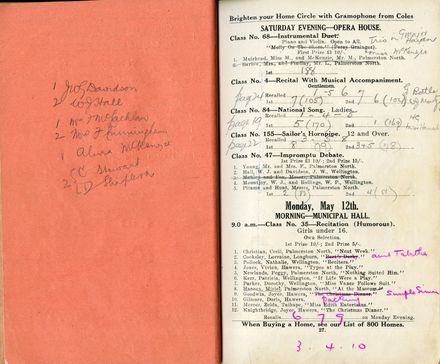 1 J W Davidson
2 W J Hall
1 Mr J McLachlan
2 Mr J Cunningham
1 Alma McKenzie
2 C C Steward
Brighten your Home Circle with Gramophone from Coles
SATURDAY EVENING—OPERA HOUSE.
Class No. 68—Instrumental Duet.
Piano and Violin. Open to All.
"Molly On The Shore." (Percy Grainger).
First Prize £3 10/-.
1. Muirhead, Miss M., and McKenzie, Mr. M., Palmerston North.
188
Class No. 4—Recital With Musical Accompaniment.
Gentlemen.
page 21 Recalled 1 - 5 6 7
1st Prize 7 (105) 2nd Prize 6 (103)
Class No. 84—National Song, Ladies.
page 19 Recalled 1 - 4 - 8
1st Prize 5 (170) 2nd Prize 1 (169)
Class No. 155—Sailor's Hornpipe. 12 and Over.
page 22 Recalled
1st Prize 8 (79) 2nd Prize 3+5 (78)
Class No. 47—Impromptu Debate.
1st Prize £1 10/-; 2nd Prize 10/-.
1. Young, Mr. and Mrs. F., Palmerston North.
2. Hall, W. J. and Davidson, J. W., Wellington.
4. Mountjoy, W. J., and Hollings, W. P., Wellington.
5. Pirani and Hunt, Messrs., Palmerston North.
1st Prize 2 2nd Prize 4
Monday, May 12th.
MORNING—MUNICIPAL HALL.
9.0 a.m.—Class No. 35—Recitation (Humorous).
Girls under 16.
Own Selection.
1st Prize 10/-; 2nd Prize 5/-.
1. Christian, Cecil, Palmerston North, "Next Week."
2. Cooksley, Lorraine, Longburn, "Bert's Derby." Aunt Tabitha
3. Pollock, Nathalie, Wellington, "Reciters."
4. Jones, Vivian, Hawera, "Types at the Play."
5. Newlands, Peggy, Palmerston North, "Nothing Suited Him."
6. Kerr, Patricia, Wellington, "If Life Were a Play."
7. Parker, Dorothy, Wellington, "Miss Vanes Follows Suit."
8. Hansen, Majel, Palmerston North, "At the Museum."
9. Goodwin, Joyce, Hawera, "The Christmas Dinner." Simple Simon
10. Gilmour, Doris, Hawera, Bathing
11. Mercer, Zelda, Taihape, "Miss Edith Entertains."
12. Knightbridge, Joyce, Hawera, "The Christmas Dinner."
Recalls 6 7 9 on Monday Evening.
When Buying a Home, see our List of 800 Homes.
27.
3 . 4 . 10